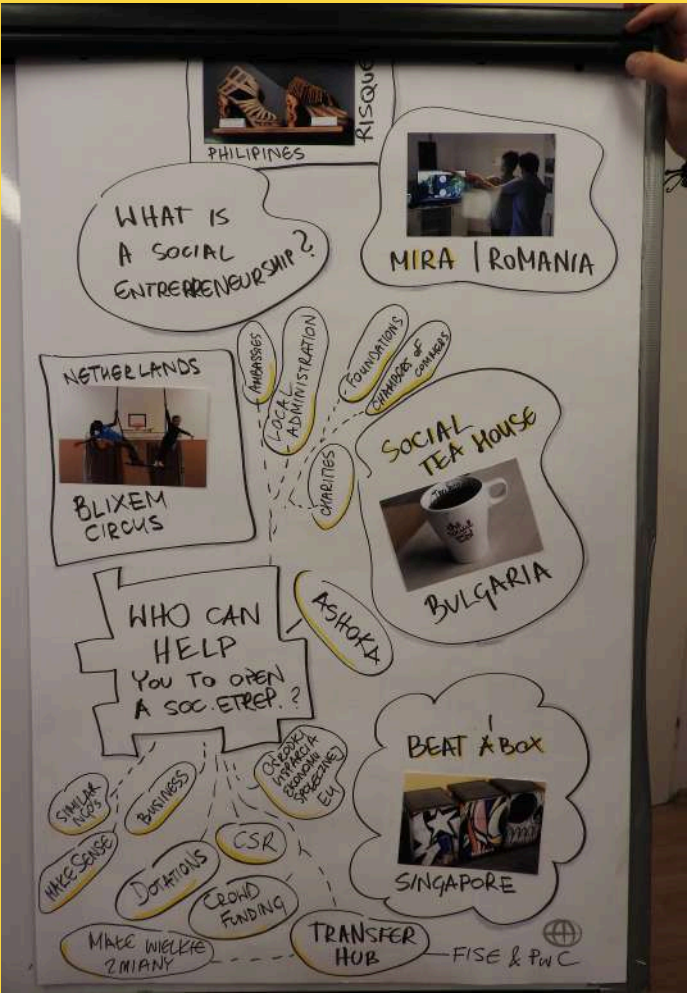 RISQUE
PHILIPINES
WHAT IS
A SOCIAL
ENTREPRENEURSHIP?
MIRA | ROMANIA
NETHERLANDS
BLIXEM
CIRCUS
AMBASSIES
LOCAL
ADMINISTRATION
FOUNDATIONS
CHAMBERS OF
COMMERS
CHARITIES
SOCIAL
TEA HOUSE
BULGARIA
WHO CAN
HELP
YOU TO OPEN
A SOC. ETREP. ?
ASHOKA
OŚRODKI
WSPARCIA
EKONOMII
SPOŁECZNEJ
EU
SIMILAR
NGO'S
BUSINESS
MAKE SENSE
DOTATIONS
CSR
CROWD
FUNDING
MAŁE WIELKIE
ZMIANY
TRANSFER
HUB
FISE & PwC
BEAT A BOX
SINGAPORE